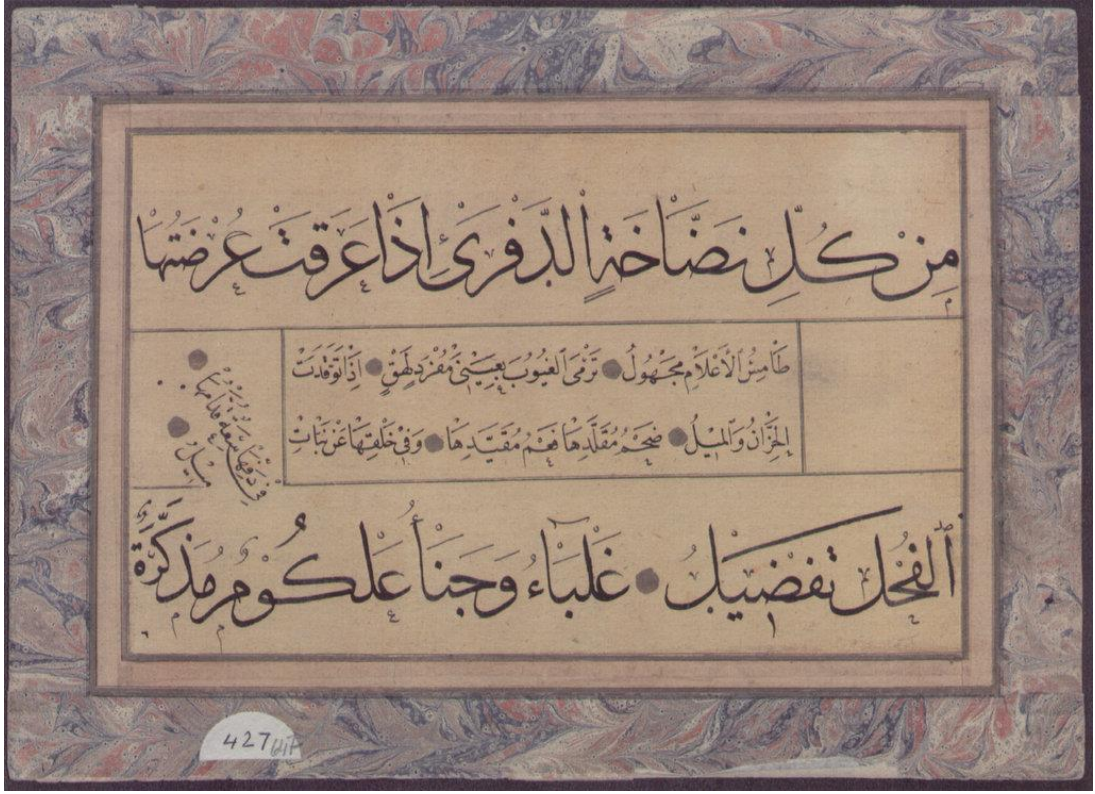 مِنْ كُلِّ نَضَّاخَةِ الذَّفْرَىٰ إِذَا عَرِقَتْ عُرْضَتُهَا
طَامِسُ الْأَعْلَامِ مَجْهُولُ ● تَرْمِى الْغُيُوبَ بِعَيْنَىْ مُفْرَدٍ لَهِقٍ ● إِذَا تَوَقَّدَتْ
الْحِزَّانُ وَالْمِيلُ ● ضَخْمٌ مُقَلَّدُهَا فَعْمٌ مُقَيَّدُهَا ● وَفِى خَلْقِهَا عَنْ بَنَاتِ
الْفَحْلِ تَفْضِيلُ ● غَلْبَاءُ وَجْنَاءُ عُلْكُومٌ مُذَكَّرَةٌ
فِى دَفِّهَا سَعَةٌ قُدَّامُهَا ●
مِيلُ ●
427